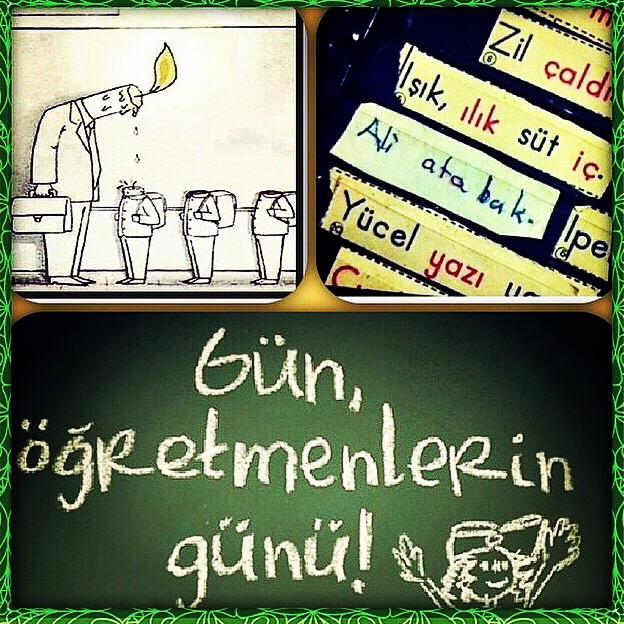 Zil çaldı
Işık, ılık süt iç.
Ali ata bak.
Yücel yazı
Gün,
öğretmenlerin
günü!